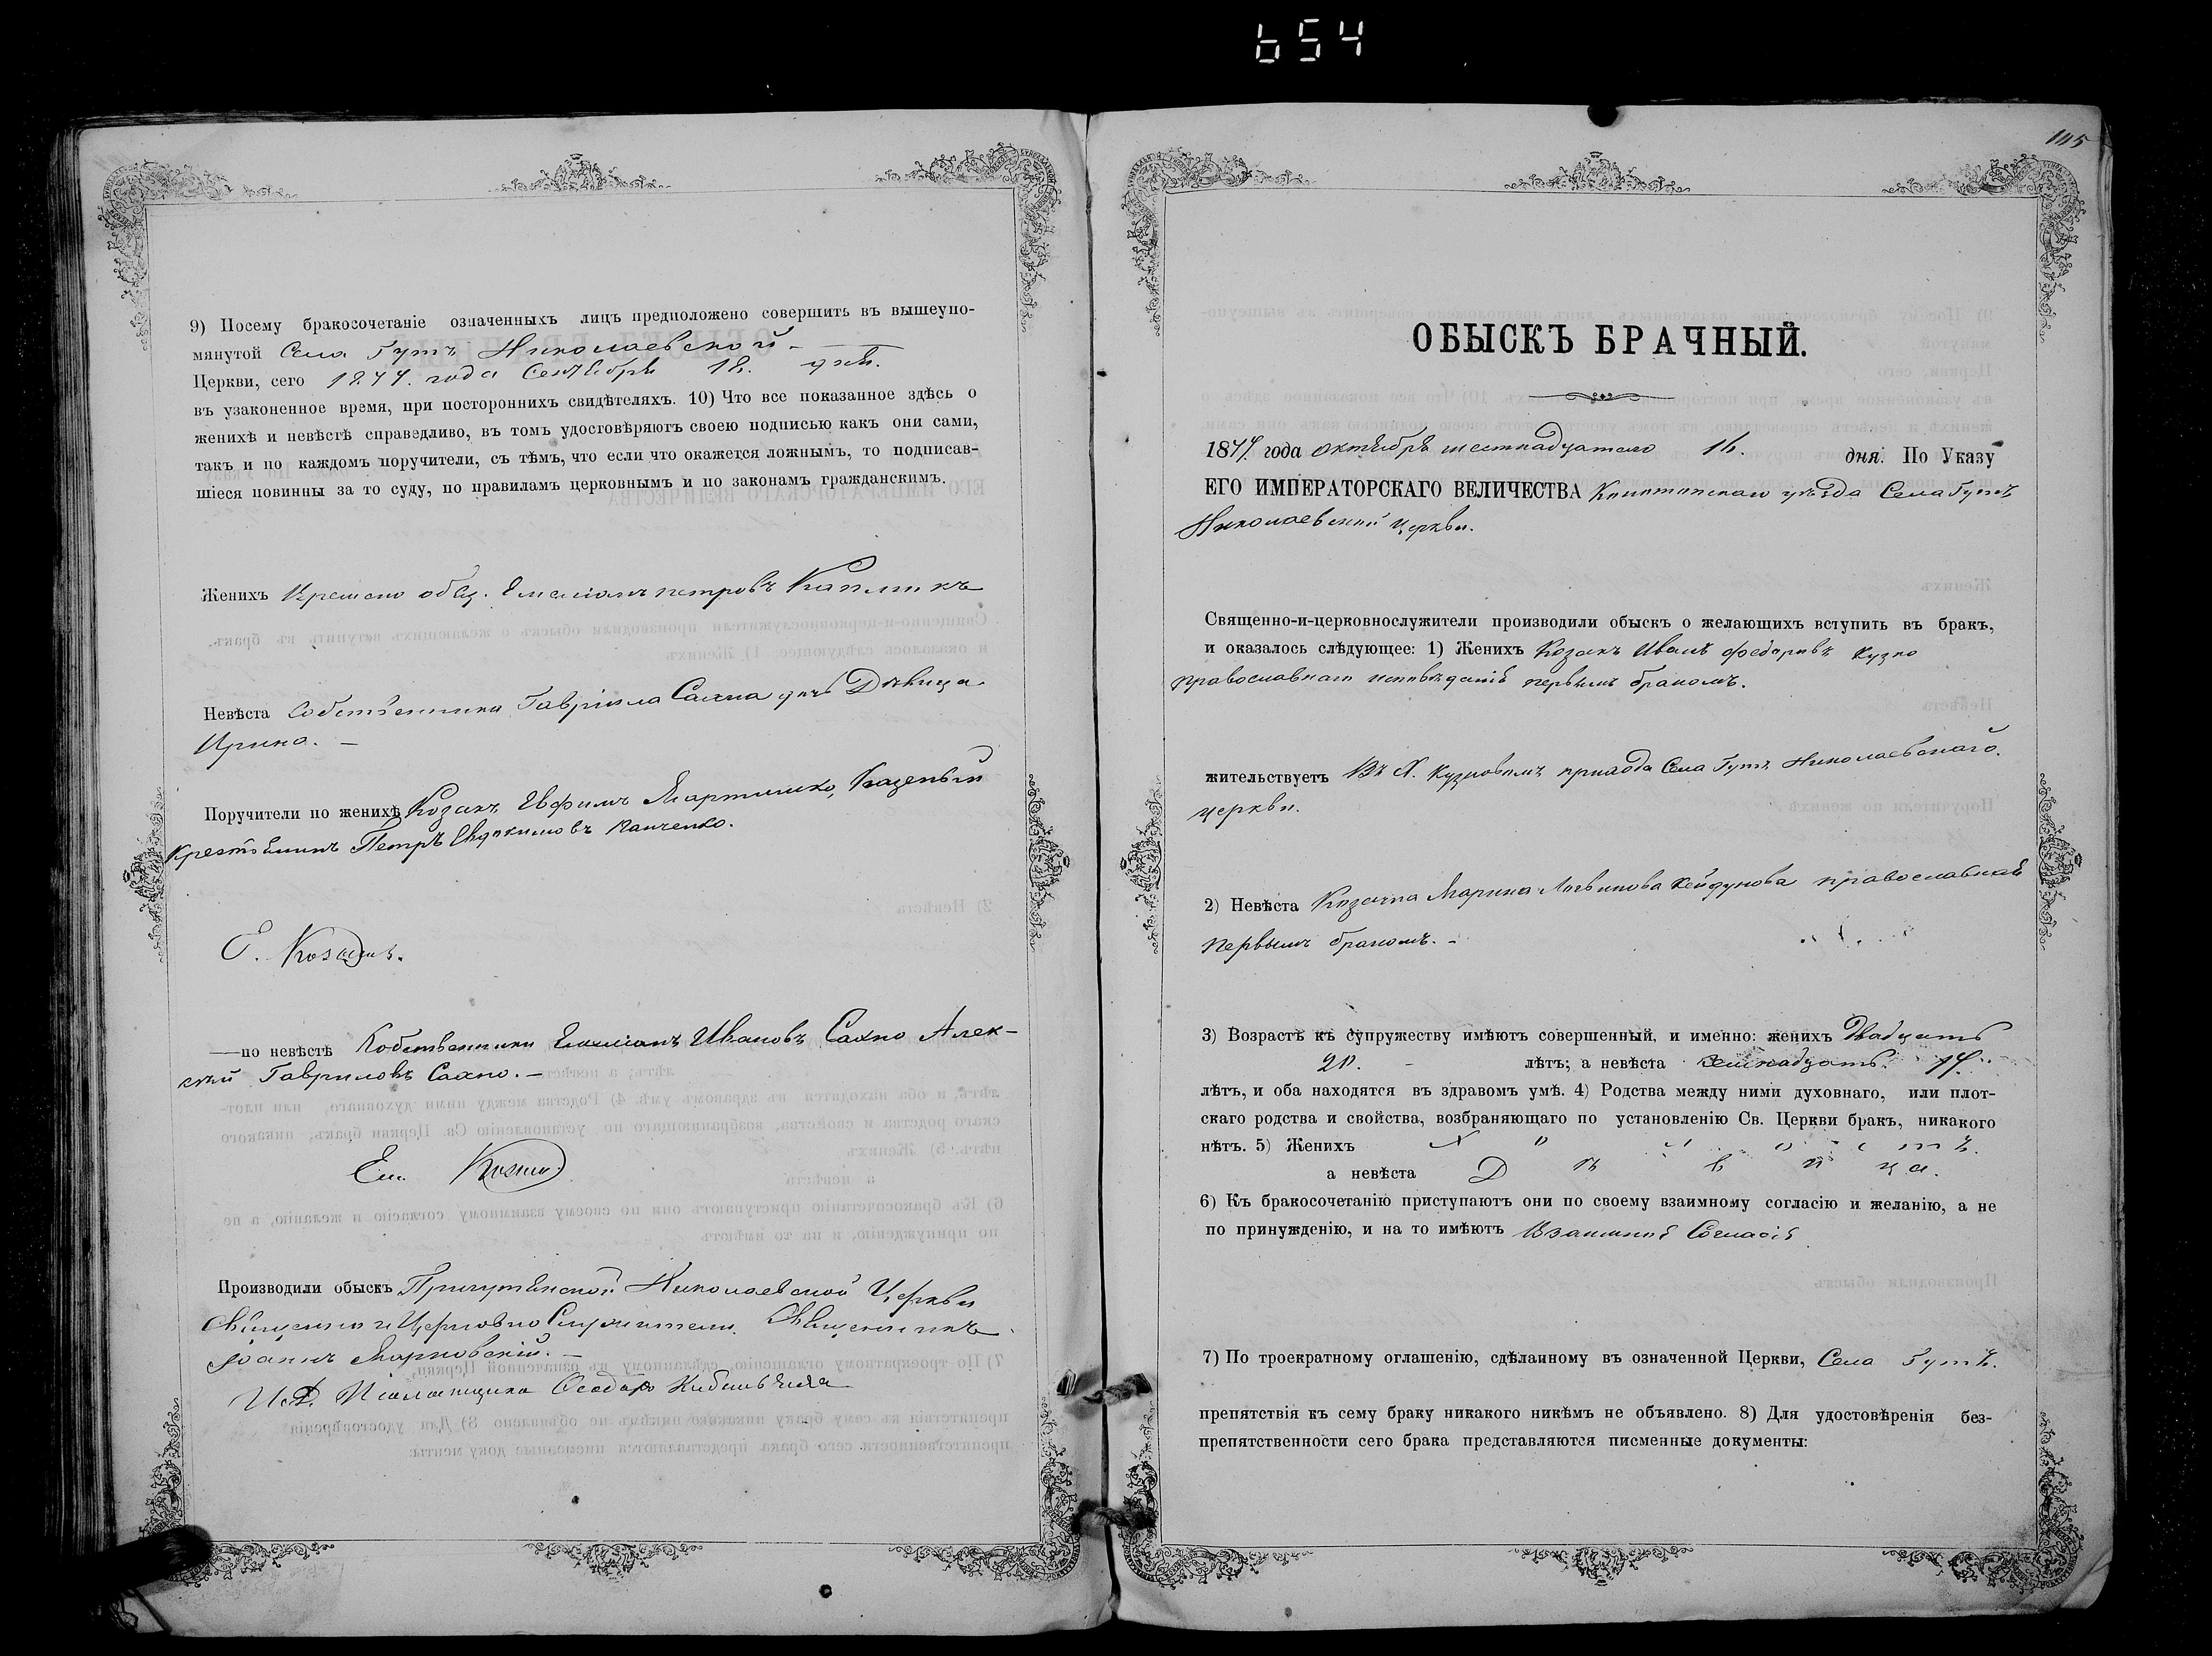 654
9) Посему бракосочетаніе означенныхъ лицъ предположено совершить въ вышеупо-
мянутой Села Гутъ Николаевской
Церкви, сего 1877. года Сентября 18. дня.
въ узаконенное время, при постороннихъ свидѣтеляхъ. 10) Что все показанное здѣсь о
женихѣ и невѣстѣ справедливо, въ томъ удостовѣряютъ своею подписью какъ они сами,
такъ и по каждомъ поручители, съ тѣмъ, что если что окажется ложнымъ, то подписав-
шіеся повинны за то суду, по правиламъ церковнымъ и по законамъ гражданскимъ.
Женихъ петровъ
Невѣста Собственника Гавріила Сахна дочь Дѣвица
Ирина.
Поручители по женихѣ Козакъ Евфимъ Мартишко, Казеный
крестянинъ Петръ Евдокимовъ Панченко.
—по невѣстѣ Ивановъ Сахно Алек-
сѣй Гавриловъ Сахно.
Производили обыскъ Николаевской Церкви
Священникъ
Іоаннъ
145
ОБЫСКЪ БРАЧНЫЙ.
1877 года октября шестнадцатаго 16. дня. По Указу
ЕГО ИМПЕРАТОРСКАГО ВЕЛИЧЕСТВА Конотопскаго уѣзда Села Гутъ
Николаевской церкви.
Священно-и-церковнослужители производили обыскъ о желающихъ вступить въ бракъ,
и оказалось слѣдующее: 1) Женихъ Козакъ Иванъ Федоровъ Кузко
православнаго исповѣданія первымъ бракомъ.
жительствуетъ Въ Х. прихода Села Гутъ Николаевскаго
церкви.
2) Невѣста Козачка Марина православная
первымъ бракомъ.
3) Возрастъ къ супружеству имѣютъ совершенный, и именно: женихъ Двадцать
20. лѣтъ; а невѣста семнадцать. 17.
лѣтъ, и оба находятся въ здравомъ умѣ. 4) Родства между ними духовнаго, или плот-
скаго родства и свойства, возбраняющаго по установленію Св. Церкви бракъ, никакого
нѣтъ. 5) Женихъ
а невѣста Дѣвица.
6) Къ бракосочетанію приступаютъ они по своему взаимному согласію и желанію, а не
по принужденію, и на то имѣютъ Взаимное Согласіе
7) По троекратному оглашенію, сдѣланному въ означенной Церкви, Села Гутъ.
препятствія къ сему браку никакого никѣмъ не объявлено. 8) Для удостовѣренія без-
препятственности сего брака представляются писменные документы: